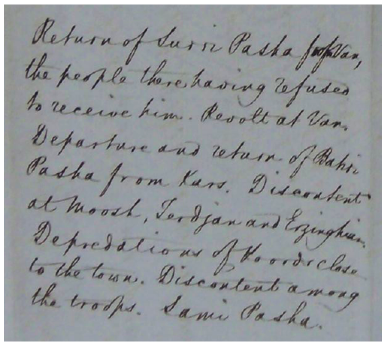 Return of Surri Pasha from Van,
the people there having refused
to receive him. Revolt at Van.
Departure and return of Bahri
Pasha from Kars. Discontent
at Moosh, Terdjan and Erzinghian.
Depredations of Koords close
to the town. Discontent among
the troops. Sami Pasha.